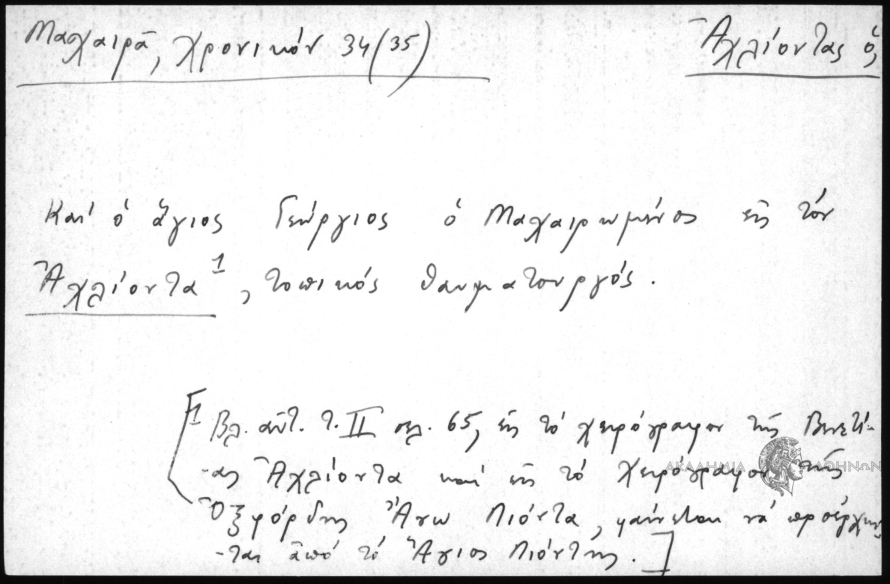 Μαχαιρᾶ, χρονικόν 34 (35)
Ἀχλίοντας ὁ,
Καί ὁ ἅγιος Γεώργιος ὁ Μαχαιρωμένος εἰς τόν
Ἀχλίοντα¹, τοπικός θαυματουργός.
[1 Βλ. αὐτ. τ. II σελ. 65, εἰς τό χειρόγραφον τῆς Βενετί-
-ας Ἀχλίοντα καί εἰς τό χειρόγραφον τῆς
Ὀξφόρδης Ἄγω Λιόντα, φαίνεται νά προέρχη-
-ται ἀπό τό Ἅγιος Λιόντης.]
ΑΚΑΔΗΜΙΑ ΑΘΗΝΩΝ